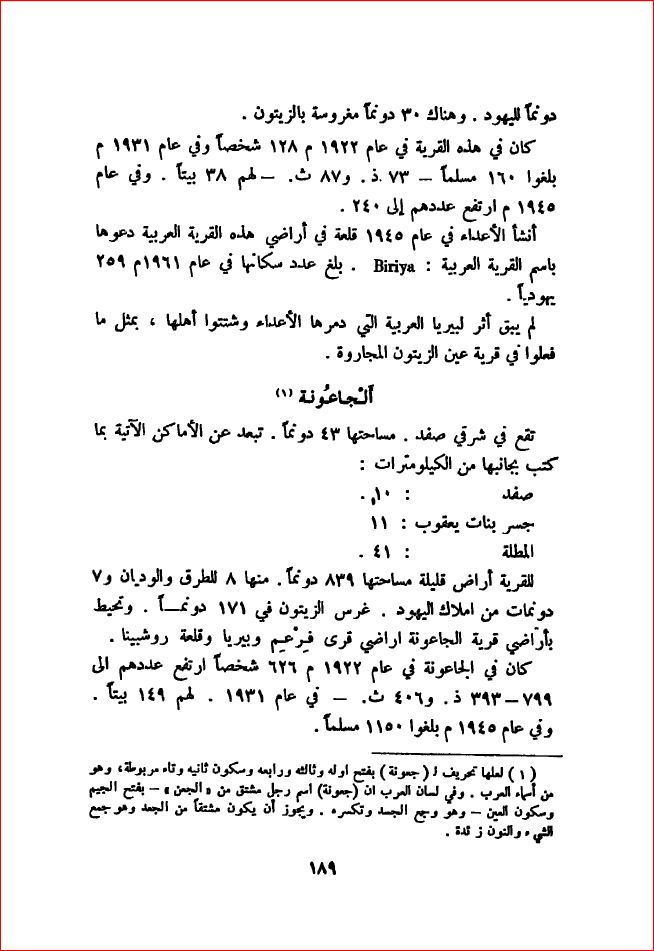 دونماً لليهود . وهناك ٣٠ دونماً مغروسة بالزيتون .
كان في هذه القرية في عام ١٩٢٢ م ١٢٨ شخصاً وفي عام ١٩٣١ م
بلغوا ١٦٠ مسلماً – ٧٣ ذ. و٨٧ ث. – لهم ٣٨ بيتاً . وفي عام
١٩٤٥ م ارتفع عددهم إلى ٢٤٠ .
أنشأ الأعداء في عام ١٩٤٥ قلعة في أراضي هذه القرية العربية دعوها
باسم القرية العربية : Biriya . بلغ عدد سكانها في عام ١٩٦١م ٢٥٩
يهودياً .
لم يبق أثر لبيريا العربية التي دمرها الأعداء وشتتوا أهلها ، بمثل ما
فعلوا في قرية عين الزيتون المجاروة .
اَلْجاعُونة (١)
تقع في شرقي صفد . مساحتها ٤٣ دونماً . تبعد عن الأماكن الآتية بما
كتب بجانبها من الكيلومترات :
صفد : ١٠ .
جسر بنات يعقوب : ١١
المطلة : ٤١ .
للقرية أراض قليلة مساحتها ٨٣٩ دونماً . منها ٨ للطرق والوديان و٧
دونمات من املاك اليهود . غرس الزيتون في ١٧١ دونمــاً . وتحيط
بأراضي قرية الجاعونة اراضي قرى فِرْعِم وبيريا وقلعة روشبينا .
كان في الجاعونة في عام ١٩٢٢ م ٦٢٦ شخصاً ارتفع عددهم الى
٧٩٩ – ٣٩٣ ذ. و٤٠٦ ث. – في عام ١٩٣١ . لهم ١٤٩ بيتاً .
وفي عام ١٩٤٥ م بلغوا ١١٥٠ مسلماً .
(١) لعلها تحريف لـ (جعونة) بفتح اوله وثالثه ورابعه وسكون ثانيه وتاء مربوطة، وهو
من أسماء العرب . وفي لسان العرب ان (جعونة) اسم رجل مشتق من «الجعن» – بفتح الجيم
وسكون العين – وهو وجع الجسد وتكسره . ويجوز أن يكون مشتقاً من الجعد وهو جمع
الشيء والنون ز ئدة .
١٨٩